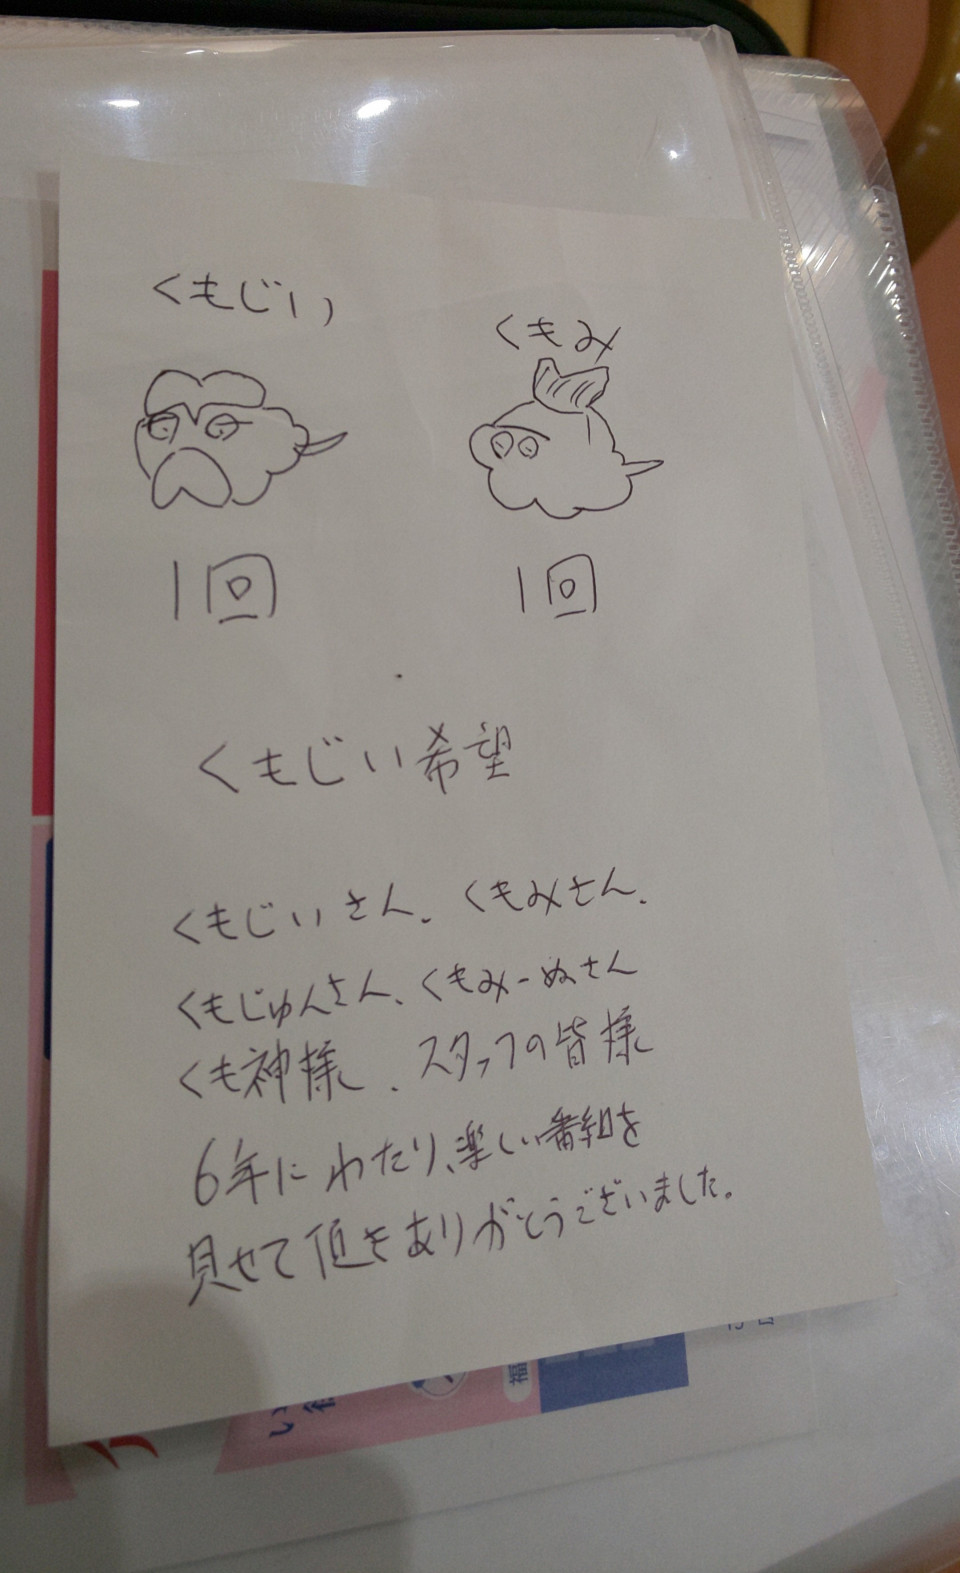 くもじい
くもみ
1回
1回
くもじい希望
くもじいさん、くもみさん、
くもじゅんさん、くもみーぬさん
くも神様、スタッフの皆様
6年にわたり、楽しい番組を
見せて頂きありがとうございました。
福